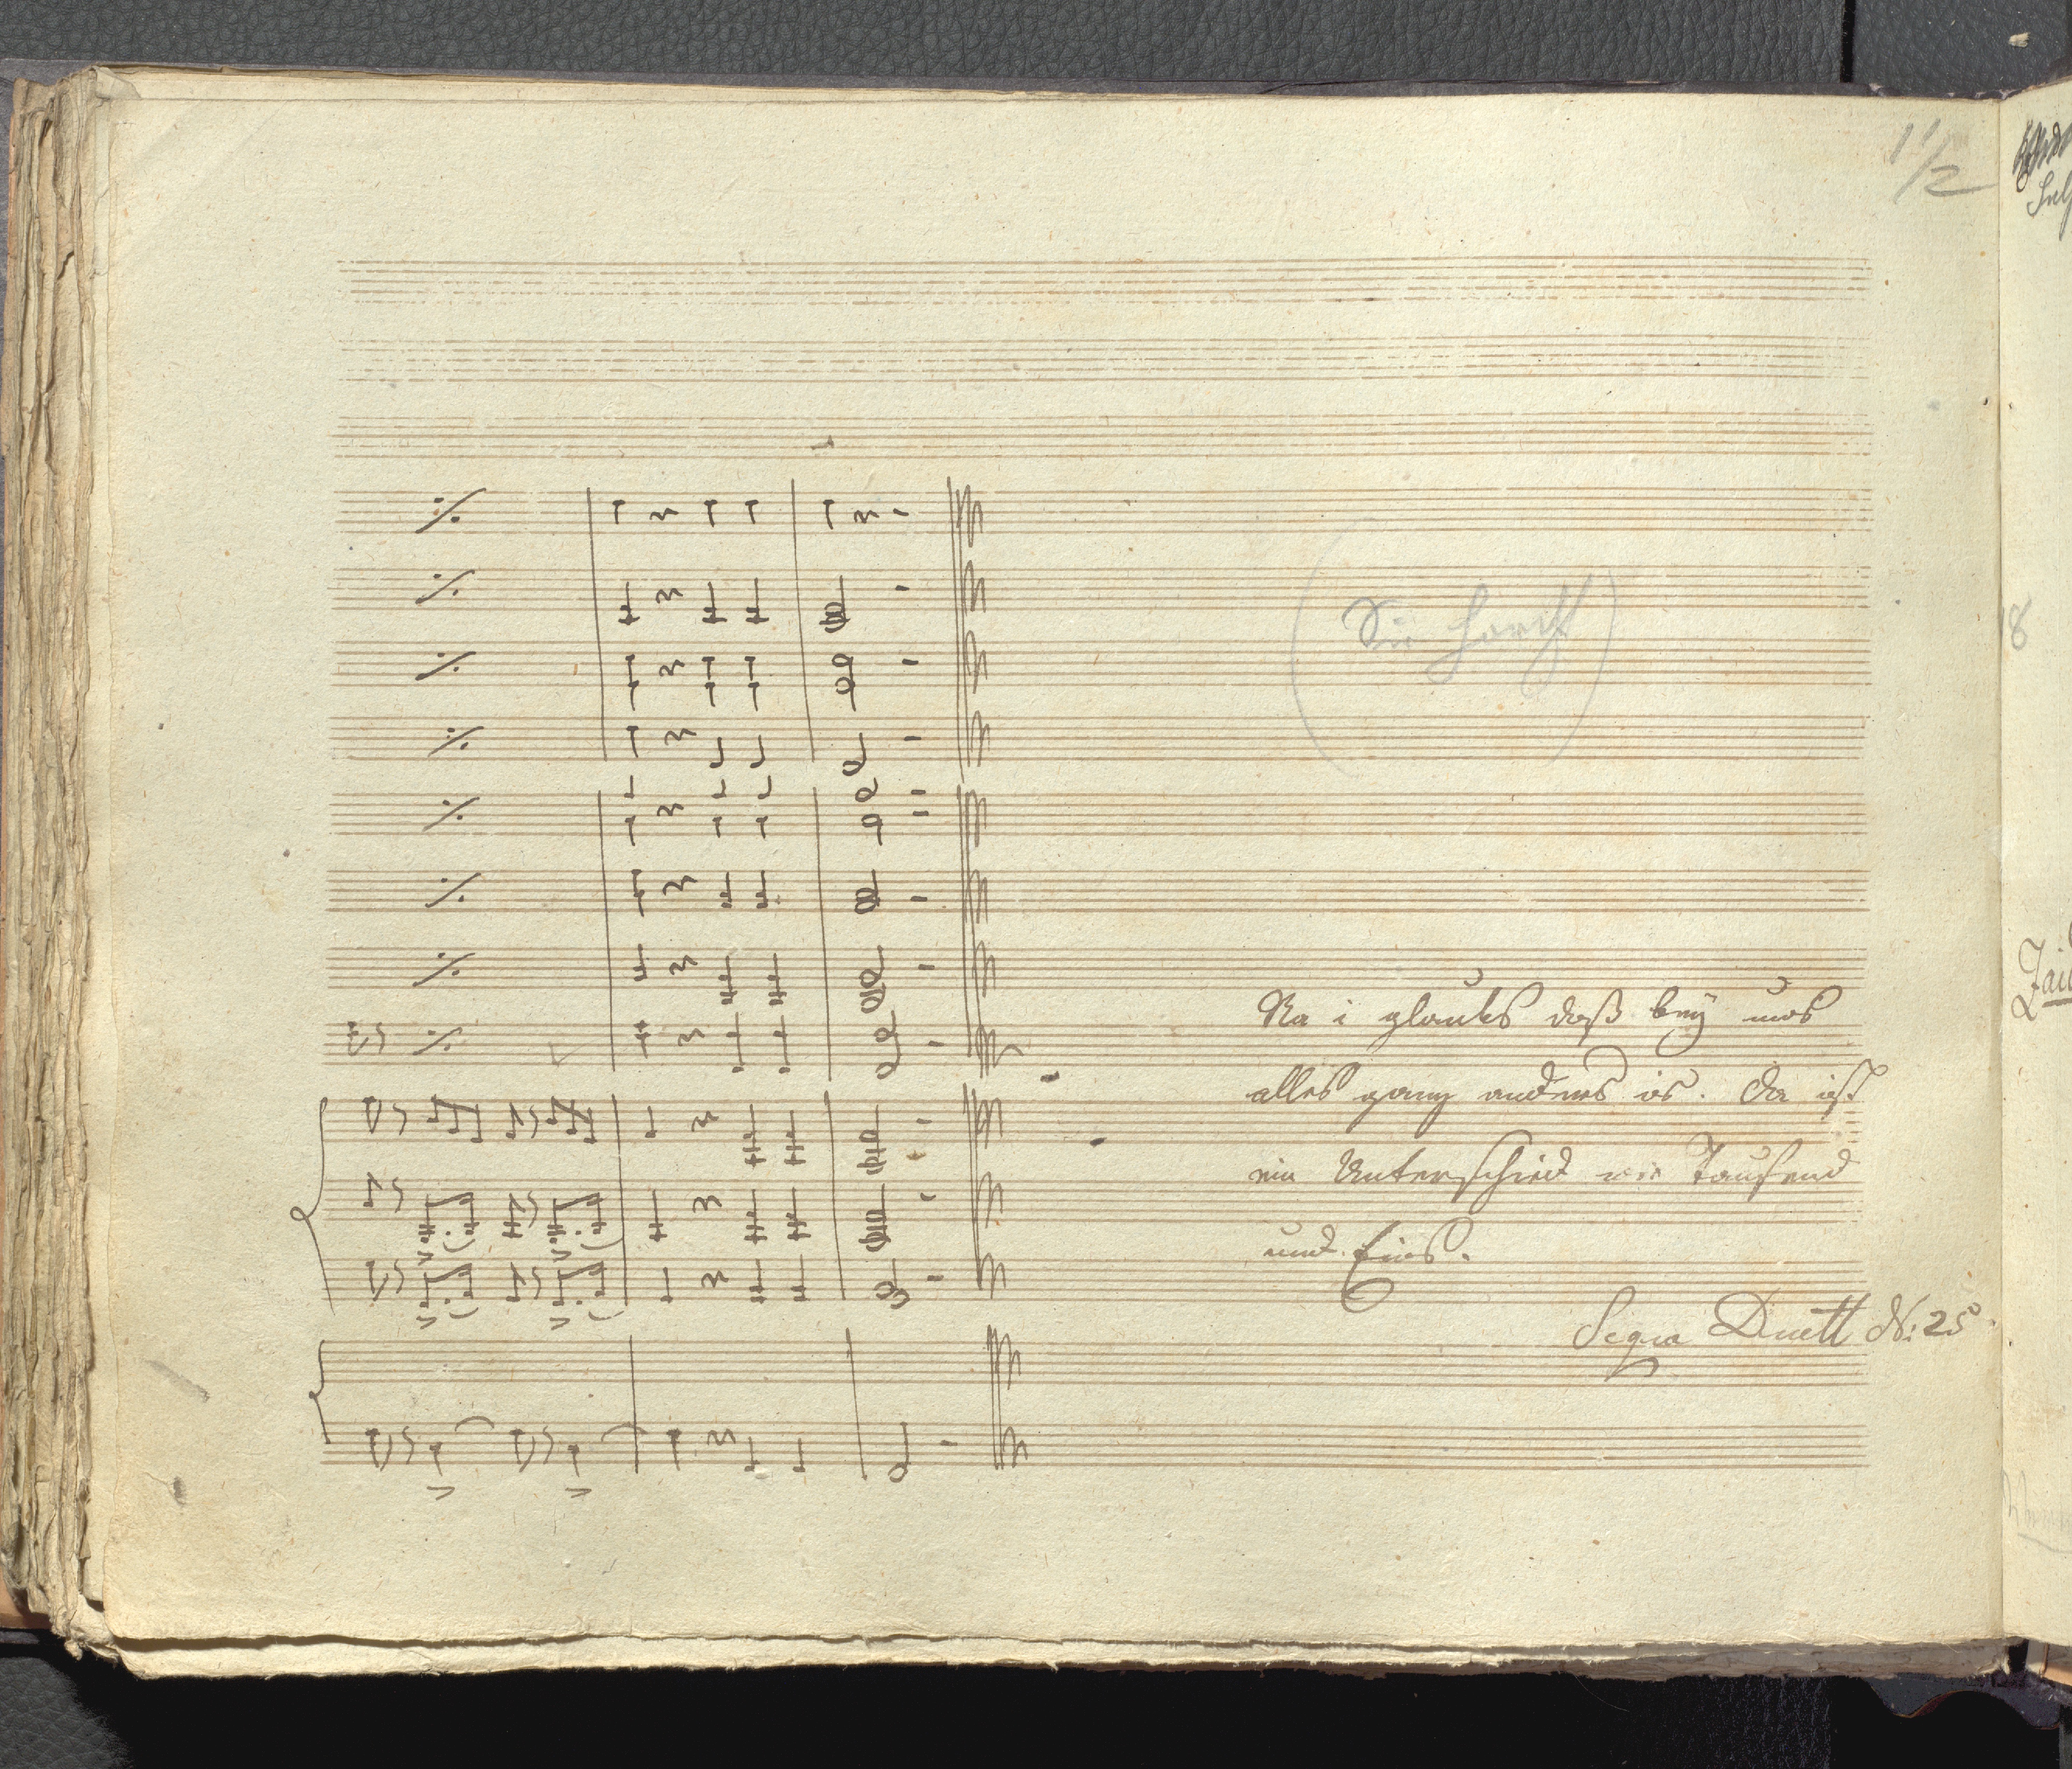 1 1/2
Na i glaubs daß bey uns
alles ganz anders is. Da ist
ein Unterschied wie Tausend
und Eins.
Segue Duett No: 25
18